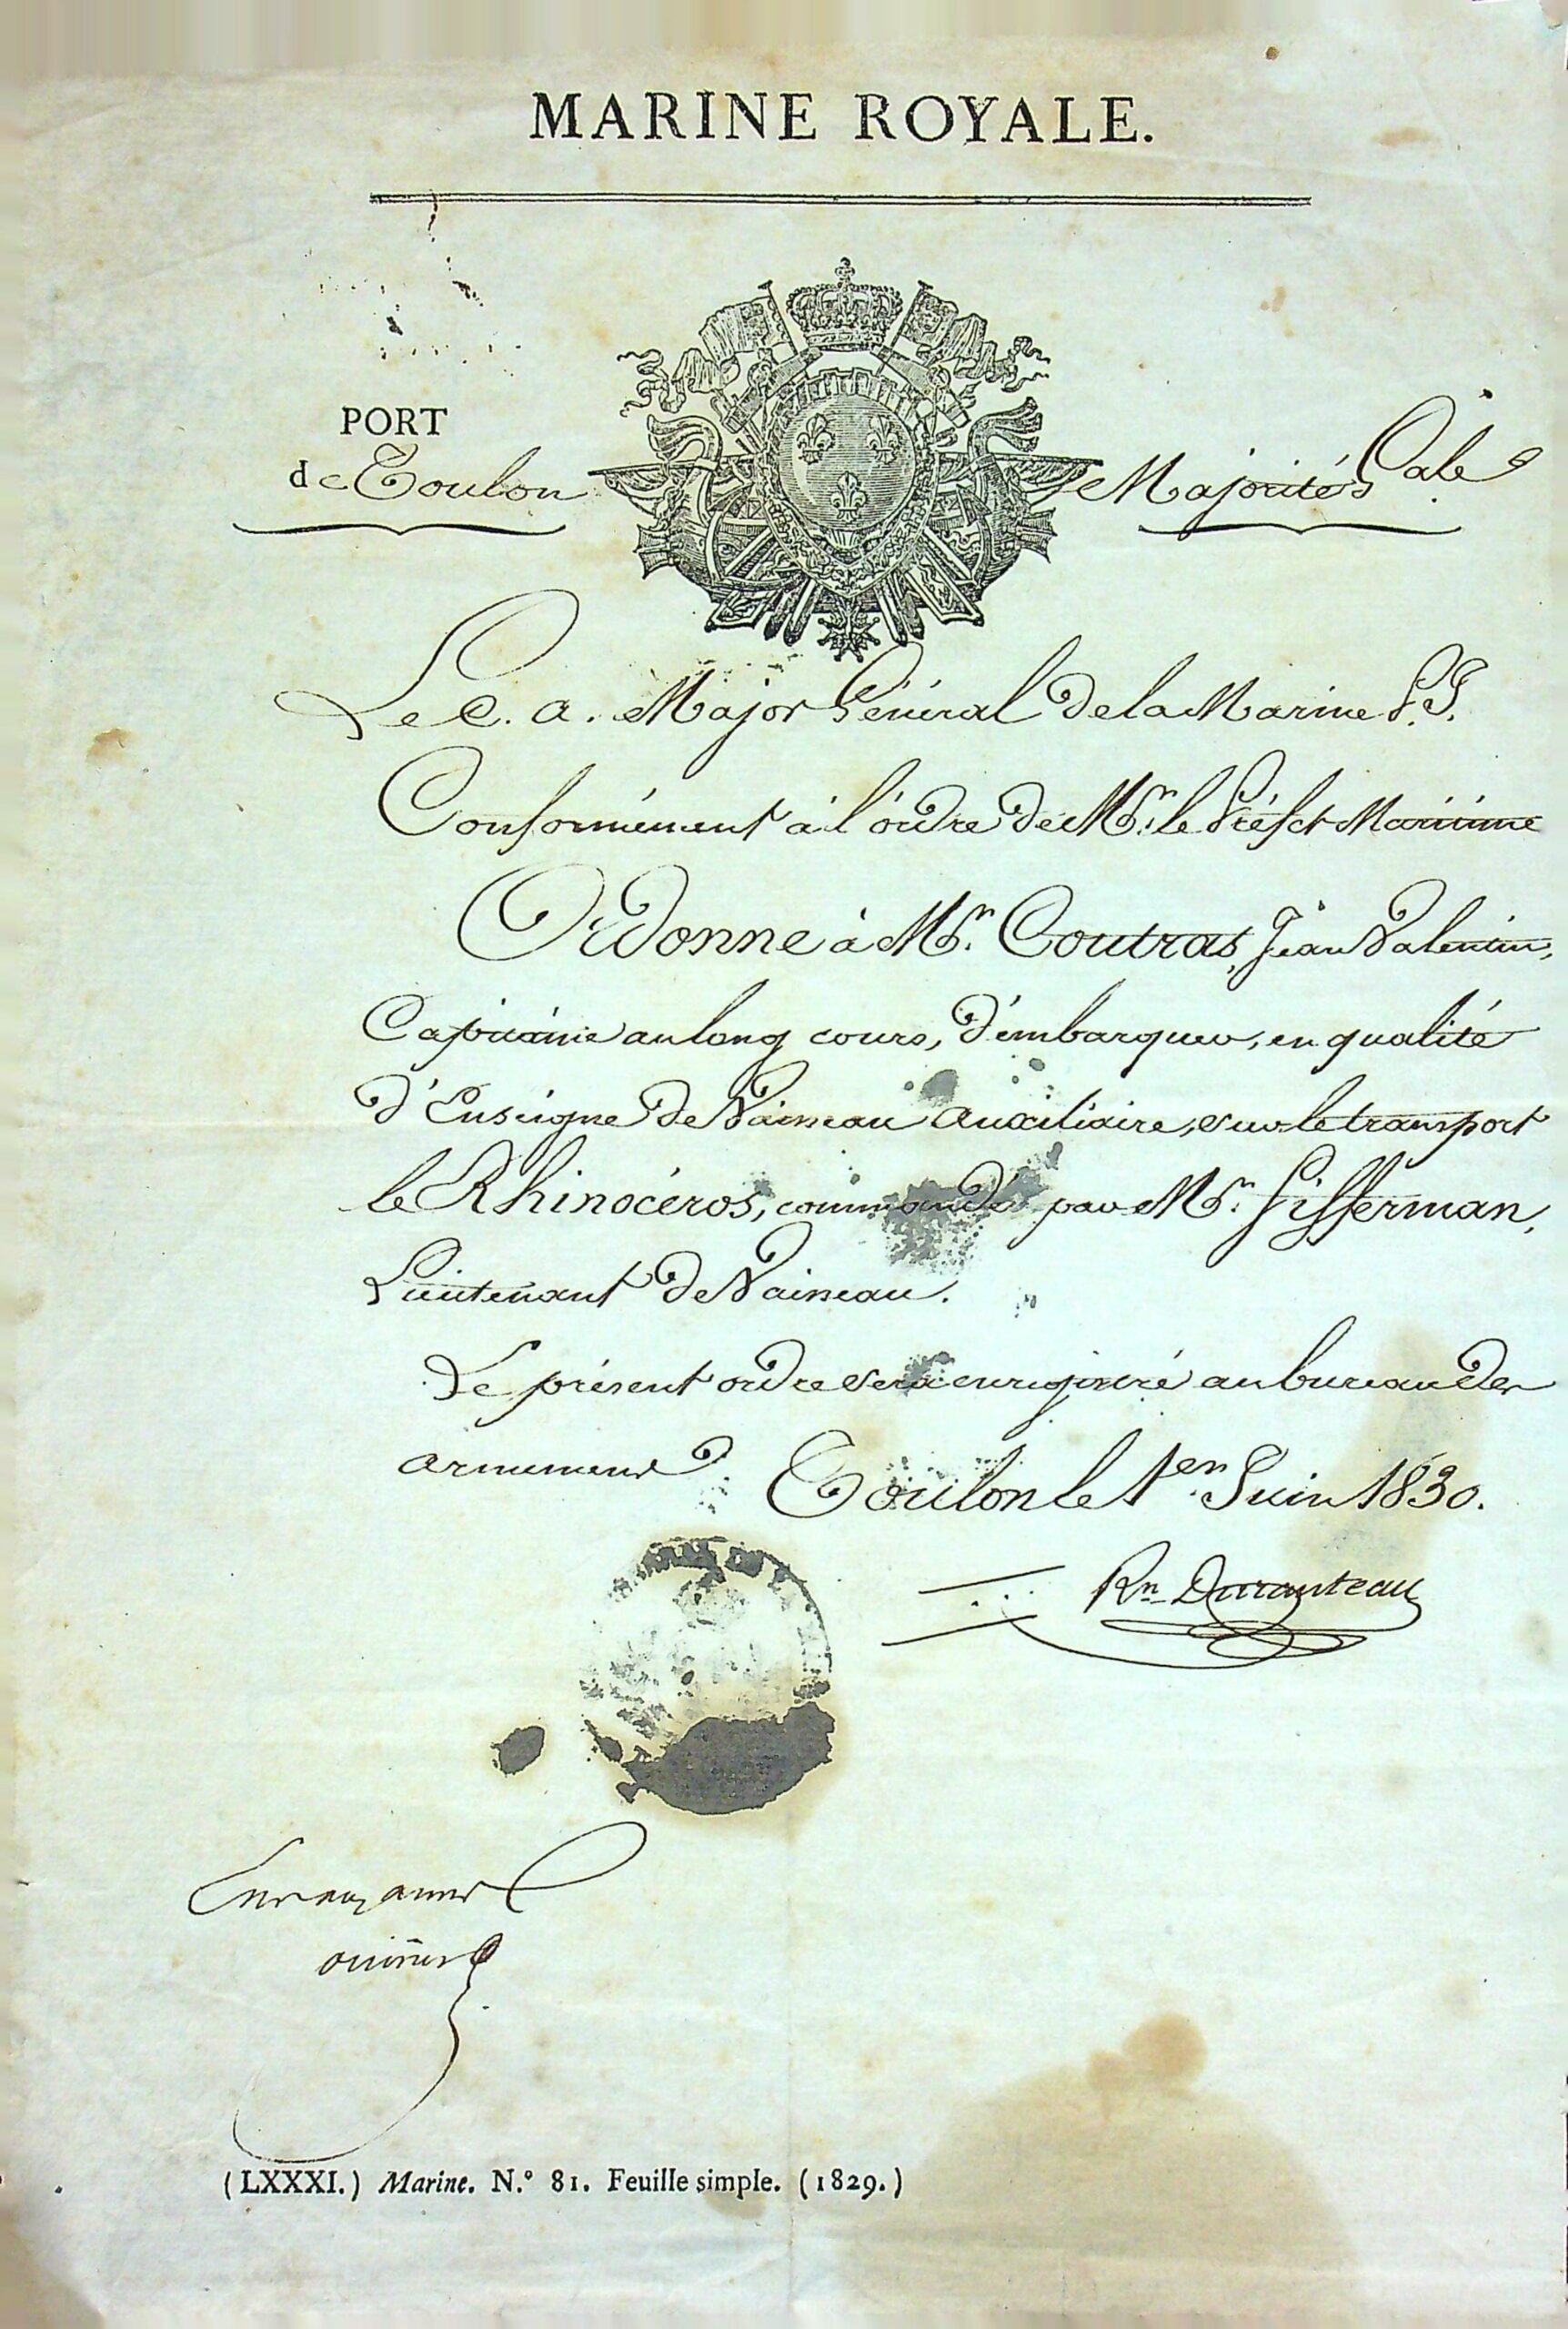 MARINE ROYALE.
PORT
de Toulon
Majorité Gale
Le C. A. Major Général de la Marine P.I.
Conformément à l'ordre de Mr. le Préfet Maritime
Ordonne à Mr. Coutras, Jean Valentin,
Capitaine au long cours, d'embarquer, en qualité
d'Enseigne de Vaisseau auxiliaire, sur le transport
le Rhinocéros, commandé par Mr. Sifferman,
Lieutenant de Vaisseau.
Le présent ordre sera enregistré au bureau des
armemens
Toulon le 1er. Juin 1830.
Rn. Duranteau
(LXXXI.) Marine. N.° 81. Feuille simple. (1829.)